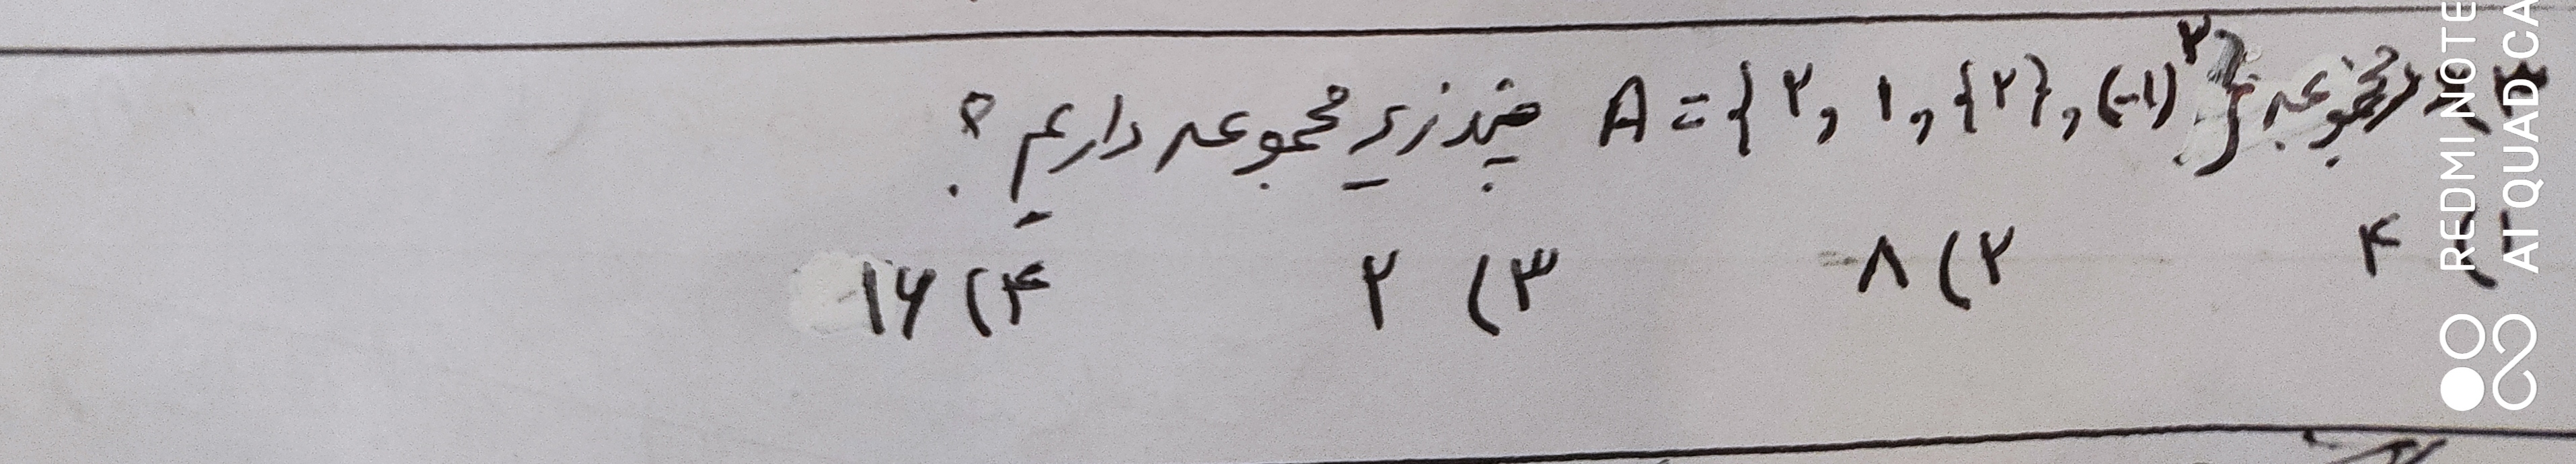 مجموعه A = {۲, ۱, {۲}, (-۱)^۲} چند زیر مجموعه داریم ؟
۴ ۲) ۸ ۳) ۲ ۴) ۱۶
REDMI NOTE
AI QUAD CA